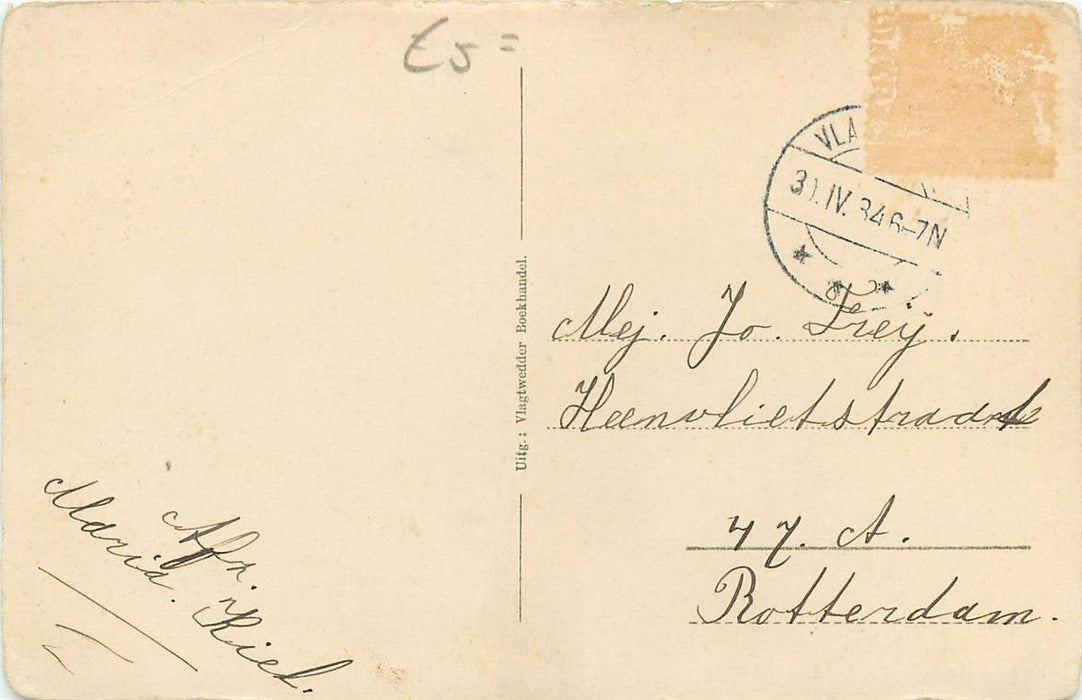 VLA
30.IV.34 6-7N
Mej. Jo. Freij.
Heenvlietstraat
47. A.
Rotterdam.
Uitg.: Vlagtwedder Boekhandel.
Afz.
Maria. Kiel.